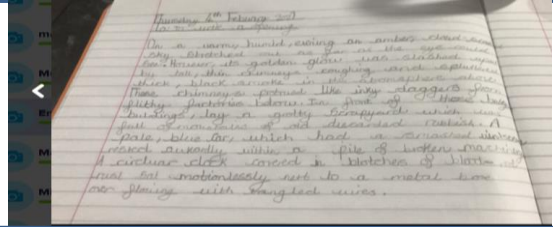 Thursday 6th February
On a warm, humid, evening an amber cloud
sky stretched out as far as the eye could
see. However, its golden glow was slashed
by tall, thin chimneys coughing and
thick, black smoke in the atmosphere above.
These chimneys like inky daggers from
filthy factories below. In front of these
buildings, lay a grotty scrapyard which was
full of of old discarded robots. A
pale, blue car, which had a smashed
rested awkwardly within a pile of broken
A circular clock covered in blotches of
rust sat motionlessly next to a metal
over flowing with tangled wires.